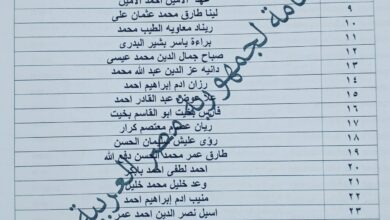 عهد الامين احمد الامين
لينا طارق محمد عثمان على ٩
ريناد معاويه الطيب محمد ١٠
براءة ياسر بشير البدرى ١١
صباح جمال الدين محمد عيسى ١٢
دانيه عز الدين عبد الله محمد ١٣
رزان ادم إبراهيم احمد ١٤
عوض عبد القادر احمد ١٥
فارس بخيت ابو القاسم بخيت ١٦
ريان معتصم كرار ١٧
رؤى عليش الحسن ١٨
طارق عمر محمد الحسن الله ١٩
احمد لطفى احمد ٢٠
وعد خليل محمد خليل ٢١
منيب ادم إبراهيم احمد ٢٢
اسيل نصر الدين احمد عمر ٢٣
لجمهورية مصر العربية